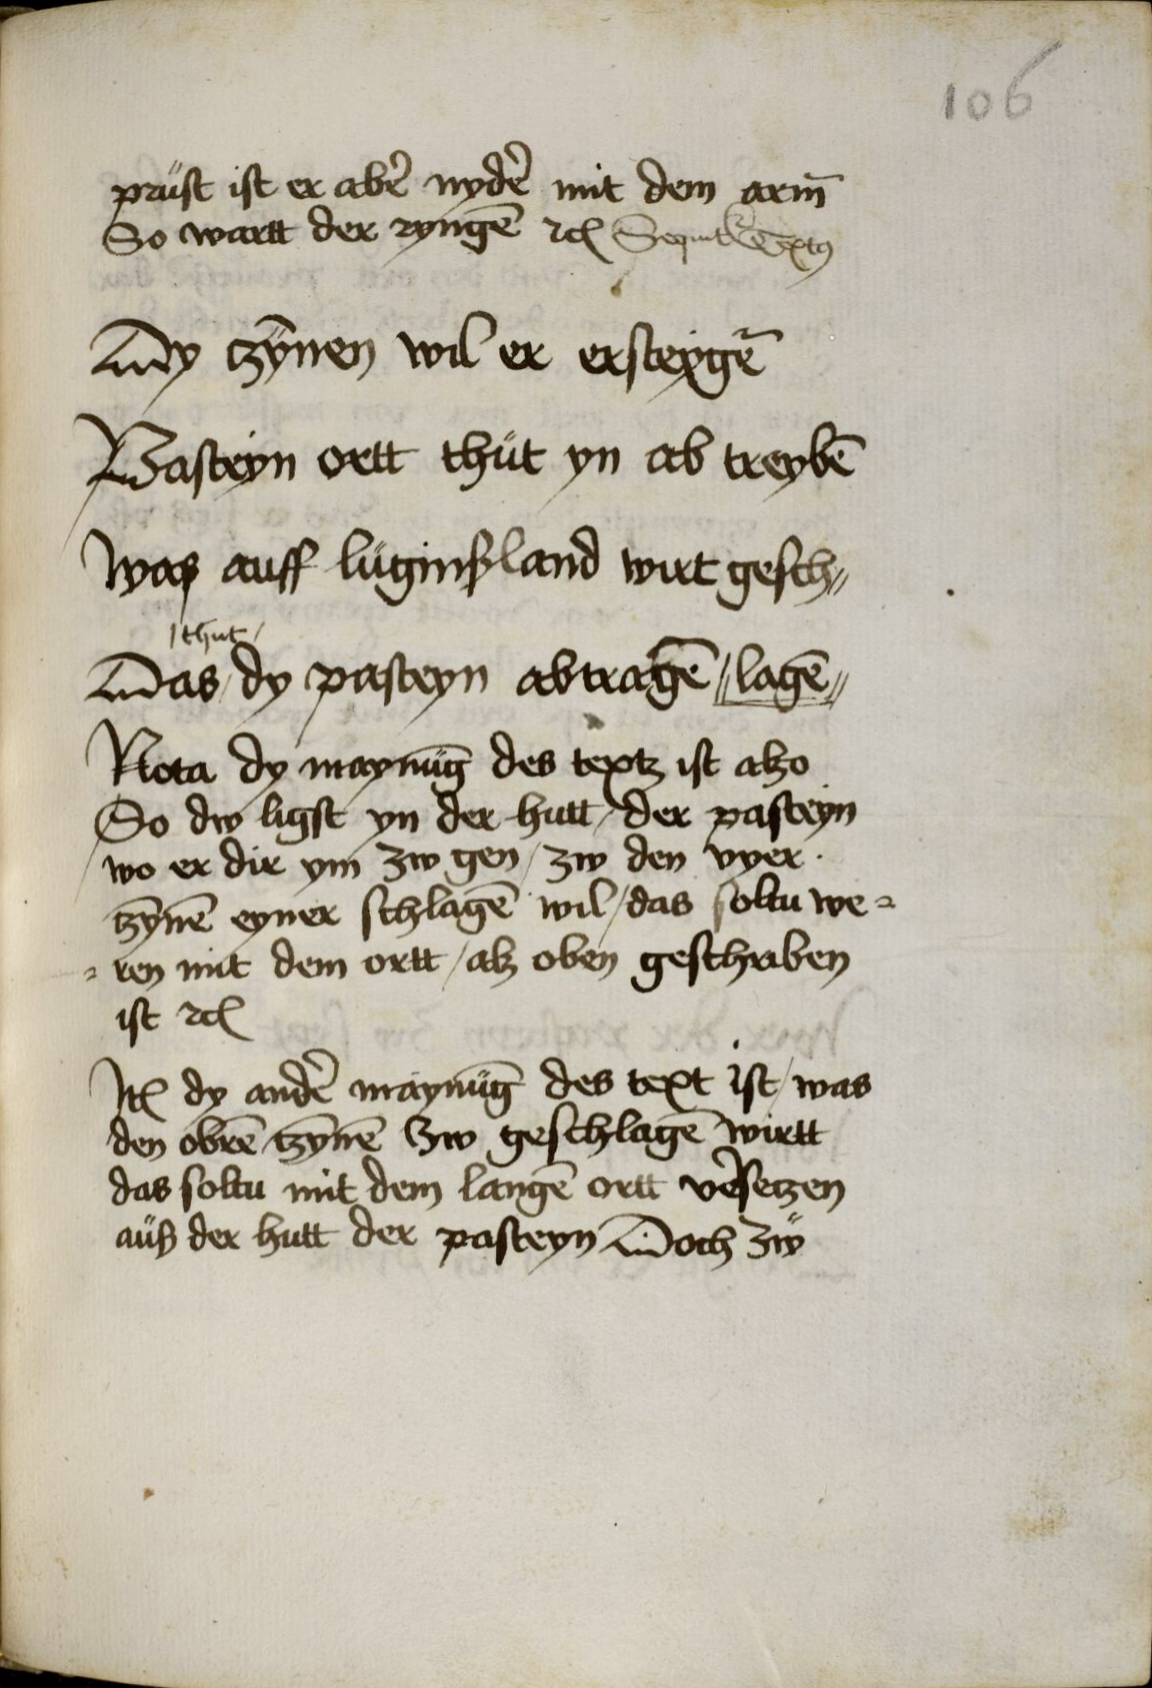 106
prüst ist er aber̄ nyder̄ mit dem arm̄
So wartt der ryngē ꝛc Sequitr Textꝰ
Dy tzÿnen wil er ersteygē
Pasteyn ortt thüt yn ab treybē
was auff lüginßland wirt gesch〃
/thut/
Das/dy pasteyn abtragē〃lagē〃
Nota dy maynūg des textz ist alzo
So dw ligst yn der hutt/der pasteyn
wo er dir ym zw gen/zw den vyer.
tzÿnē eyner schlagē wil/das soltu we=
=ren mit dem ortt/alz oben geschriben
ist ꝛc
Itē dy ander̄ maynūg des text ist/was
den obrē tzÿnē zw geschlagē wirtt
das soltu mit dem langē ortt v̄setzen
auß der hutt der pasteyn Doch zẅ